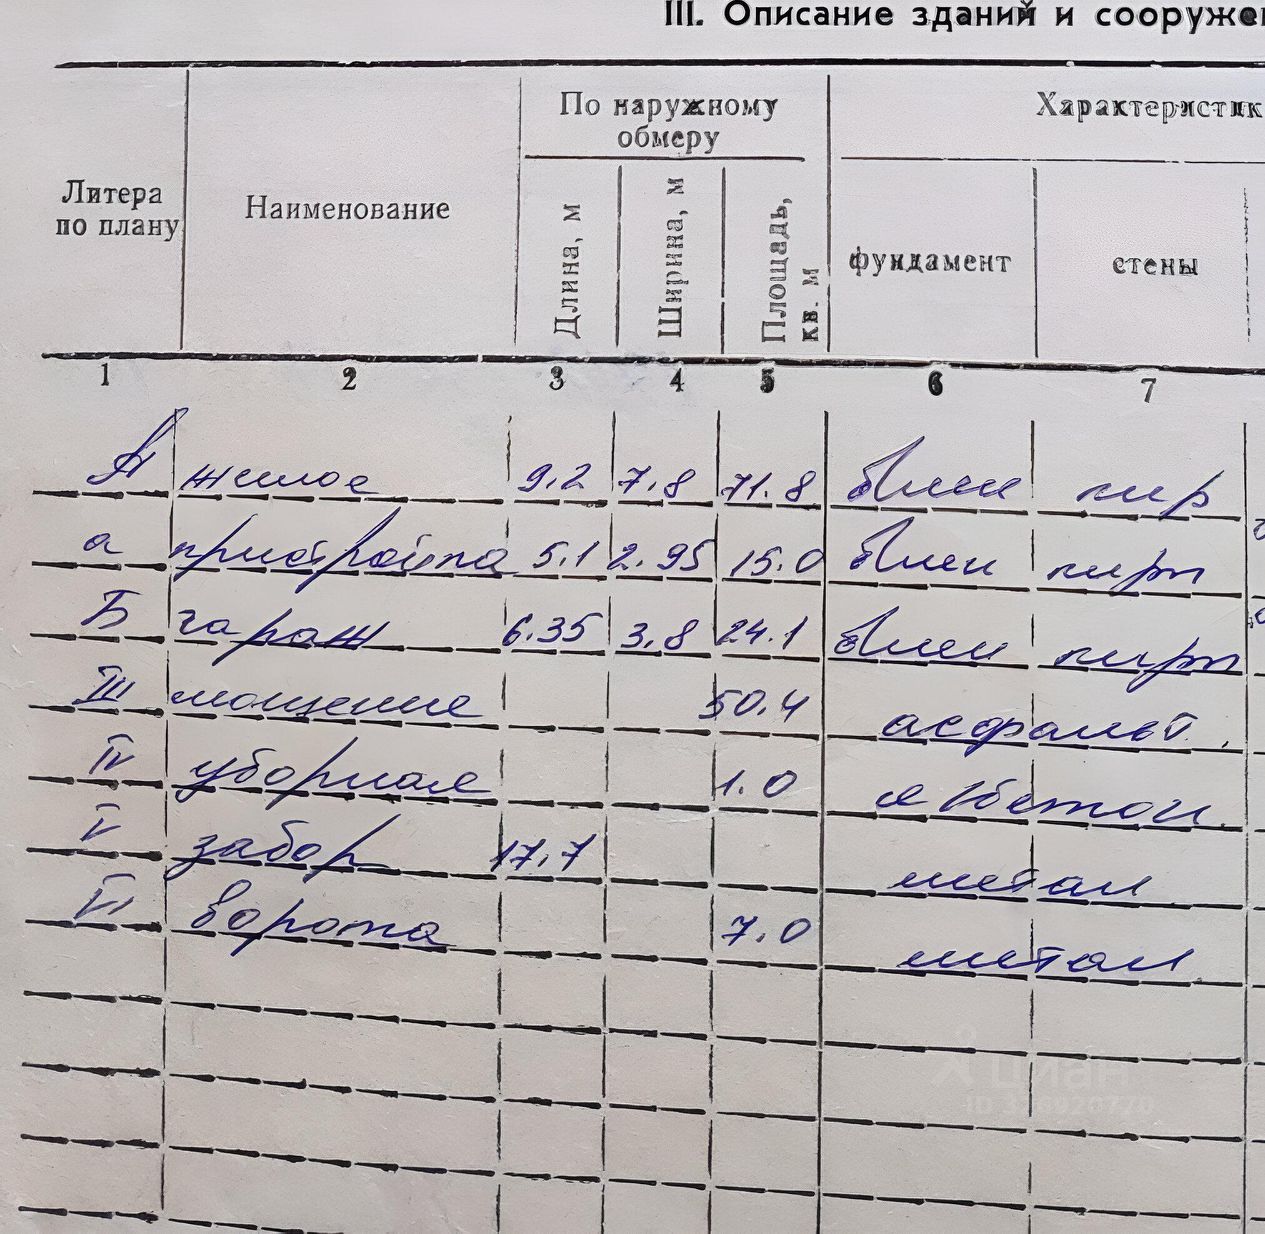 III. Описание зданий и сооруже
По наружному обмеру
Характеристик
Литера по плану
Наименование
Длина, м
Ширина, м
Площадь, кв. м
фундамент
стены
1 2 3 4 5 6 7
А жилое 9.2 7.8 71.8 блин кир
а пристройка 5.1 2.95 15.0 блин кирп
Б гараж 6.35 3.8 24.1 блин кирп
III мощение 50.4 асфальт.
IV уборная 1.0
V забор 17.7 метал
VI ворота 7.0 метал
циан